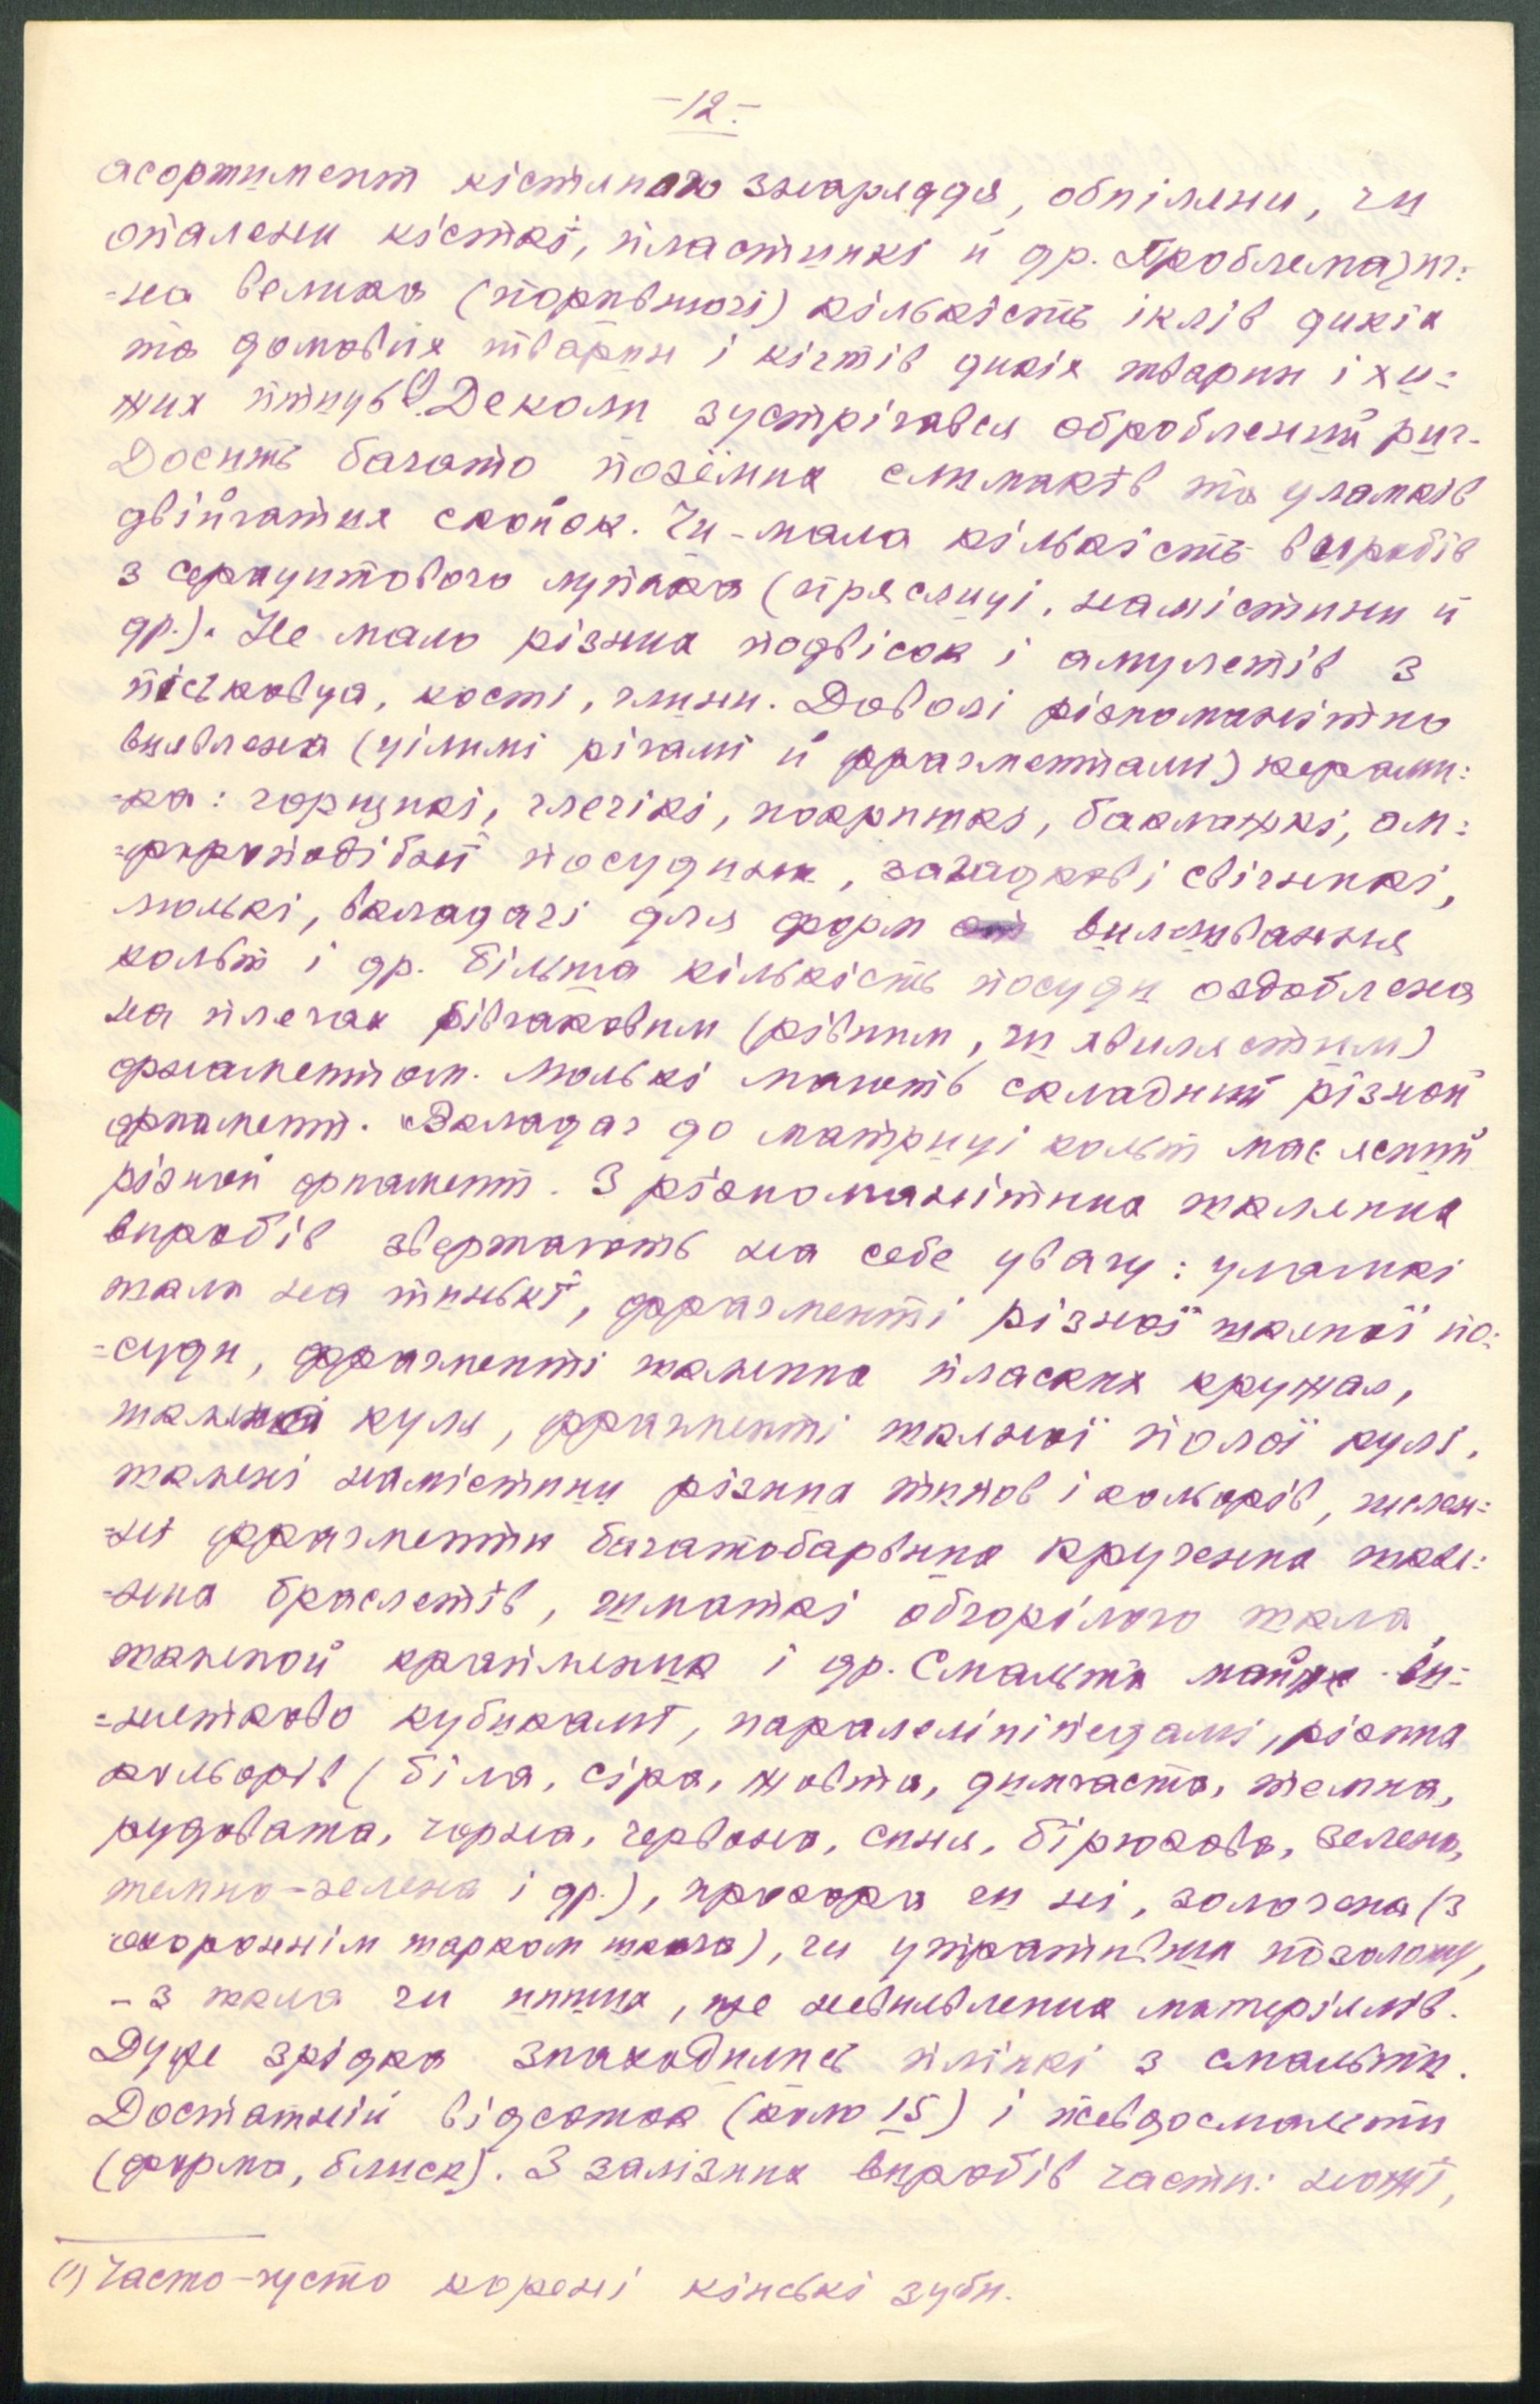 -12.-
асортимент кістяного знаряддя, обпіляни, чи
опалени кісткі, пластинкі й др. Проблематич=
=на велика (порівнючі) кількість іклів дикіх
та домовіх тварин і кігтів дикіх тварин і хи=
жих птиць (1). Деколи зустрічався оброблений ріг.
Досить багато поземних слимаків та уламків
двійчатих скойок. Чи-мала кількість виробів
з серицитового лупака (пряслиці, намістини й
др.). Не мало різних подвісок і амулетів з
пісковця, кості, глини. Доволі різноманітно
виявлена (цілими річамі й фрагментами) керамі=
=ка: горщикі, глечікі, покришкі, баклажкі, ам=
=фороподібни посудини, загадкові свічникі,
люлькі, вкладачі для форм виливання
кольт і др. Більша кількість посуди оздоблена
на плечах рівчаковим (рівним, чи хвилястим)
орнаментом. Люлькі мають складний різной
орнамент. Вкладач до матриці кольт має ясний
різной орнамент. З різноманітних шкляних
виробів звертають на себе увагу: уламкі
шкла на тинькі, фрагменті різної шкляної по=
=суди, фрагменті шкляних пласких кружал,
шкляной куля, фрагменті шкляної полої кулі,
шкляні намістини різних типов і кольорів, числен=
=ні фрагменти багатобарвних кручених шкля=
=них браслетів, шматкі обгорілого шкла,
шкляной крапленик і др. Смальта майже ви=
=нятково кубикамі, паралелініпедамі, різних
кольорів (біла, сіра, жовта, димчаста, темна,
рудовата, чорна, червона, синя, бірюзова, зелена,
темно-зелена і др.), прозора чи ні, золочена (з
охороннім шарком шкла), чи утратившия позолоту,
- з шкла чи инших, ще невиявлених матеріялів.
Дуже зрідка знаходились плікі з смальти.
Достатній відсоток (коло 15) і псевдосмальти
(форма, блиск). З залізних виробів часті: ножі,
(1) Часто-густо корені кінські зуби.